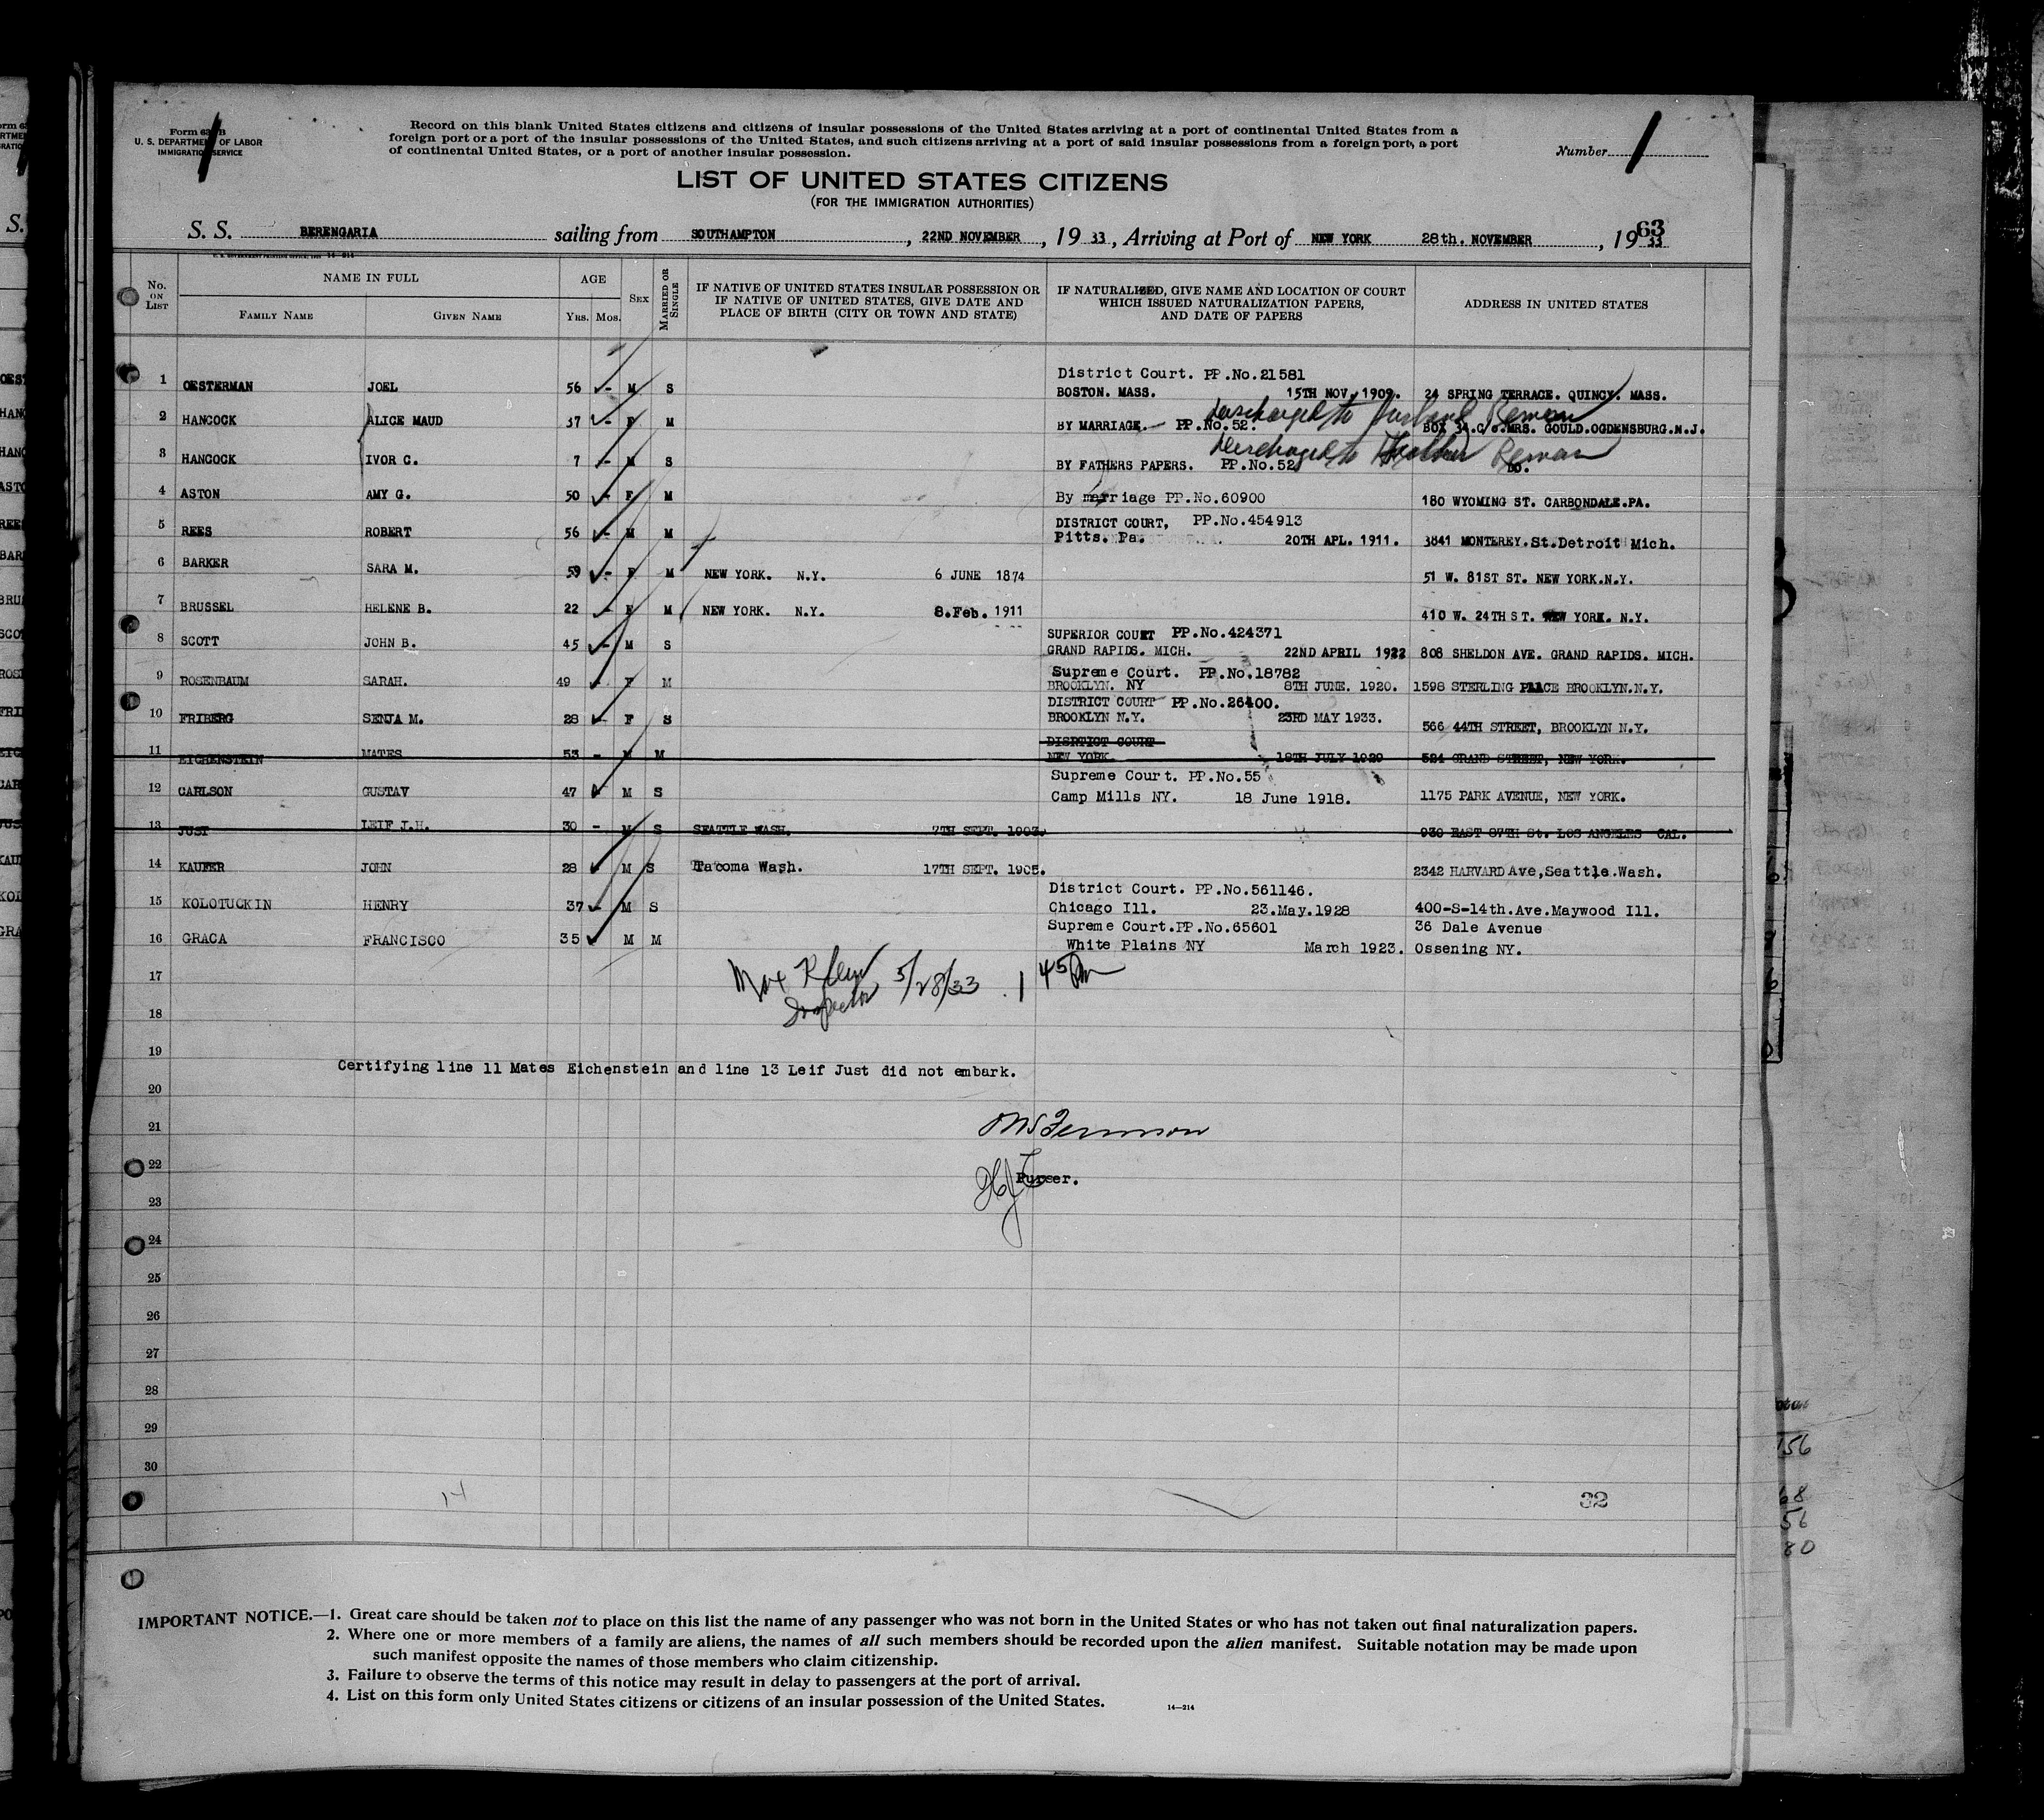 Form 630 B
U. S. DEPARTMENT OF LABOR
IMMIGRATION SERVICE
Record on this blank United States citizens and citizens of insular possessions of the United States arriving at a port of continental United States from a
foreign port or a port of the insular possessions of the United States, and such citizens arriving at a port of said insular possessions from a foreign port, a port
of continental United States, or a port of another insular possession.
Number 1
LIST OF UNITED STATES CITIZENS
(FOR THE IMMIGRATION AUTHORITIES)
S. S. BERENGARIA sailing from SOUTHAMPTON, 22ND NOVEMBER, 19 33, Arriving at Port of NEW YORK 28th. NOVEMBER, 19 33
63
No. ON LIST
NAME IN FULL
FAMILY NAME GIVEN NAME
AGE
YRS. MOS.
SEX
MARRIED OR SINGLE
IF NATIVE OF UNITED STATES INSULAR POSSESSION OR
IF NATIVE OF UNITED STATES, GIVE DATE AND
PLACE OF BIRTH (CITY OR TOWN AND STATE)
IF NATURALIZED, GIVE NAME AND LOCATION OF COURT
WHICH ISSUED NATURALIZATION PAPERS,
AND DATE OF PAPERS
ADDRESS IN UNITED STATES
District Court. PP.No.21581
1 OESTERMAN JOEL 56 - M S BOSTON. MASS. 15TH NOV, 1909. 24 SPRING TERRACE. QUINCY. MASS.
discharged to husband
2 HANCOCK ALICE MAUD 37 - F M BY MARRIAGE.- PP.No.52. BOX 34.C/o.MRS. GOULD.OGDENSBURG.N.J.
discharged to
3 HANCOCK IVOR C. 7 - M S BY FATHERS PAPERS. PP.No.52 DO.
4 ASTON AMY G. 50 - F M By marriage PP.No.60900 180 WYOMING ST. CARBONDALE.PA.
DISTRICT COURT, PP.No.454913
5 REES ROBERT 56 - M M Pitts. Pa. 20TH APL. 1911. 3841 MONTEREY.St.Detroit Mich.
6 BARKER SARA M. 59 - F M NEW YORK. N.Y. 6 JUNE 1874 51 W. 81ST ST. NEW YORK.N.Y.
7 BRUSSEL HELENE B. 22 - F M NEW YORK. N.Y. 8.Feb. 1911 410 W. 24TH ST. NEW YORK. N.Y.
SUPERIOR COURT PP.No.424371
8 SCOTT JOHN B. 45 - M S GRAND RAPIDS. MICH. 22ND APRIL 1922 808 SHELDON AVE. GRAND RAPIDS. MICH.
Supreme Court. PP.No.18782
9 ROSENBAUM SARAH. 49 - F M BROOKLYN. NY 8TH JUNE. 1920. 1598 STERLING PLACE BROOKLYN.N.Y.
DISTRICT COURT PP.No.26400.
10 FRIBERG SENJA M. 28 - F S BROOKLYN N.Y. 23RD MAY 1933. 566 44TH STREET, BROOKLYN N.Y.
DISRTICT COURT
11 EICHENSTEIN MATES 53 - M M NEW YORK. 18TH JULY 1929 524 GRAND STREET, NEW YORK.
Supreme Court. PP.No.55
12 CARLSON GUSTAV 47 - M S Camp Mills NY. 18 June 1918. 1175 PARK AVENUE, NEW YORK.
13 JUST LEIF J.H. 30 - M S SEATTLE WASH. 7TH SEPT. 1903. 930 EAST 87TH St. LOS ANGELES CAL.
14 KAUFER JOHN 28 M S Tacoma Wash. 17TH SEPT. 1905. 2342 HARVARD Ave,Seattle.Wash.
District Court. PP.No.561146.
15 KOLOTUCKIN HENRY 37 - M S Chicago Ill. 23.May.1928 400-S-14th.Ave.Maywood Ill.
Supreme Court.PP.No.65601 36 Dale Avenue
16 GRACA FRANCISCO 35 M M White Plains NY March 1923. Ossening NY.
17 Max Klein 5/28/33 . 1 45 Pm
Inspector
18
19
Certifying line 11 Mates Eichenstein and line 13 Leif Just did not embark.
20
21
22 Purser.
23
24
25
26
27
28
29
30
14
32
IMPORTANT NOTICE.—1. Great care should be taken not to place on this list the name of any passenger who was not born in the United States or who has not taken out final naturalization papers.
2. Where one or more members of a family are aliens, the names of all such members should be recorded upon the alien manifest. Suitable notation may be made upon
such manifest opposite the names of those members who claim citizenship.
3. Failure to observe the terms of this notice may result in delay to passengers at the port of arrival.
4. List on this form only United States citizens or citizens of an insular possession of the United States.
14—214